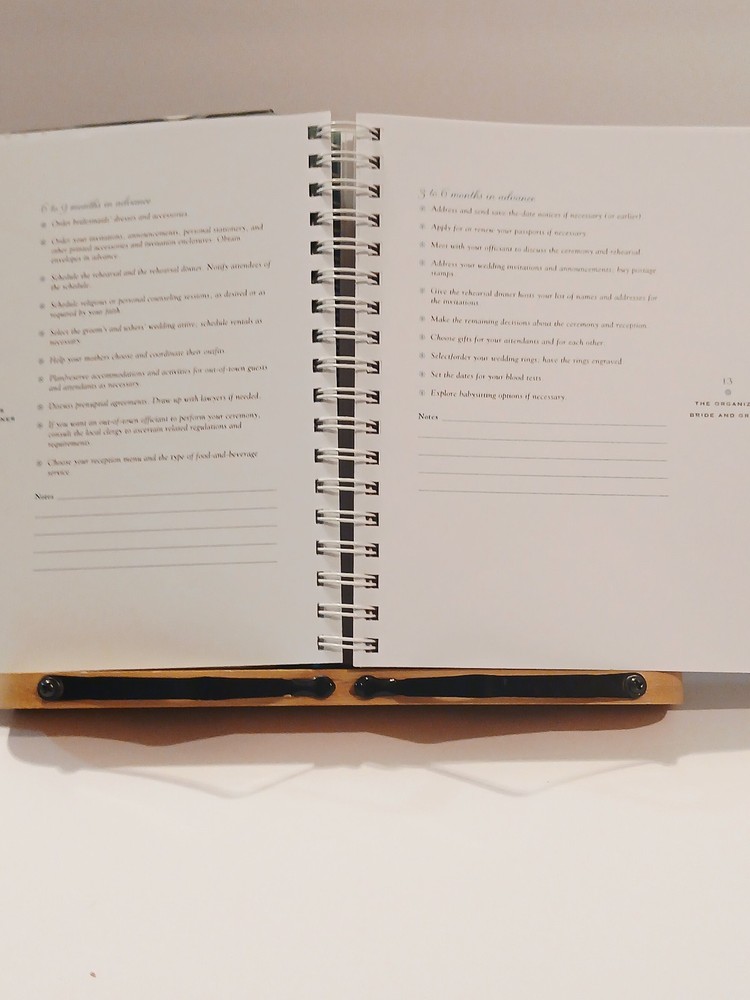 6 to 9 months in advance
Order bridesmaids' dresses and accessories.
Order your invitations, announcements, personal stationery, and
other printed accessories and invitation enclosures. Obtain
envelopes in advance.
Schedule the rehearsal and the rehearsal dinner. Notify attendees of
the schedule.
Schedule religious or personal counseling sessions, as desired or as
required by your faith.
Select the groom's and ushers' wedding attire; schedule rentals as
necessary.
Help your mothers choose and coordinate their outfits.
Plan/reserve accommodations and activities for out-of-town guests
and attendants as necessary.
Discuss prenuptial agreements. Draw up with lawyers if needed.
If you want an out-of-town officiant to perform your ceremony,
consult the local clergy to ascertain related regulations and
requirements.
Choose your reception menu and the type of food-and-beverage
service.
Notes
3 to 6 months in advance
Address and send save-the-date notices if necessary (or earlier).
Apply for or renew your passports if necessary.
Meet with your officiant to discuss the ceremony and rehearsal.
Address your wedding invitations and announcements; buy postage
stamps.
Give the rehearsal dinner hosts your list of names and addresses for
the invitations.
Make the remaining decisions about the ceremony and reception.
Choose gifts for your attendants and for each other.
Select/order your wedding rings; have the rings engraved.
Set the dates for your blood tests.
Explore babysitting options if necessary.
Notes
13
THE ORGANIZ
BRIDE AND GR